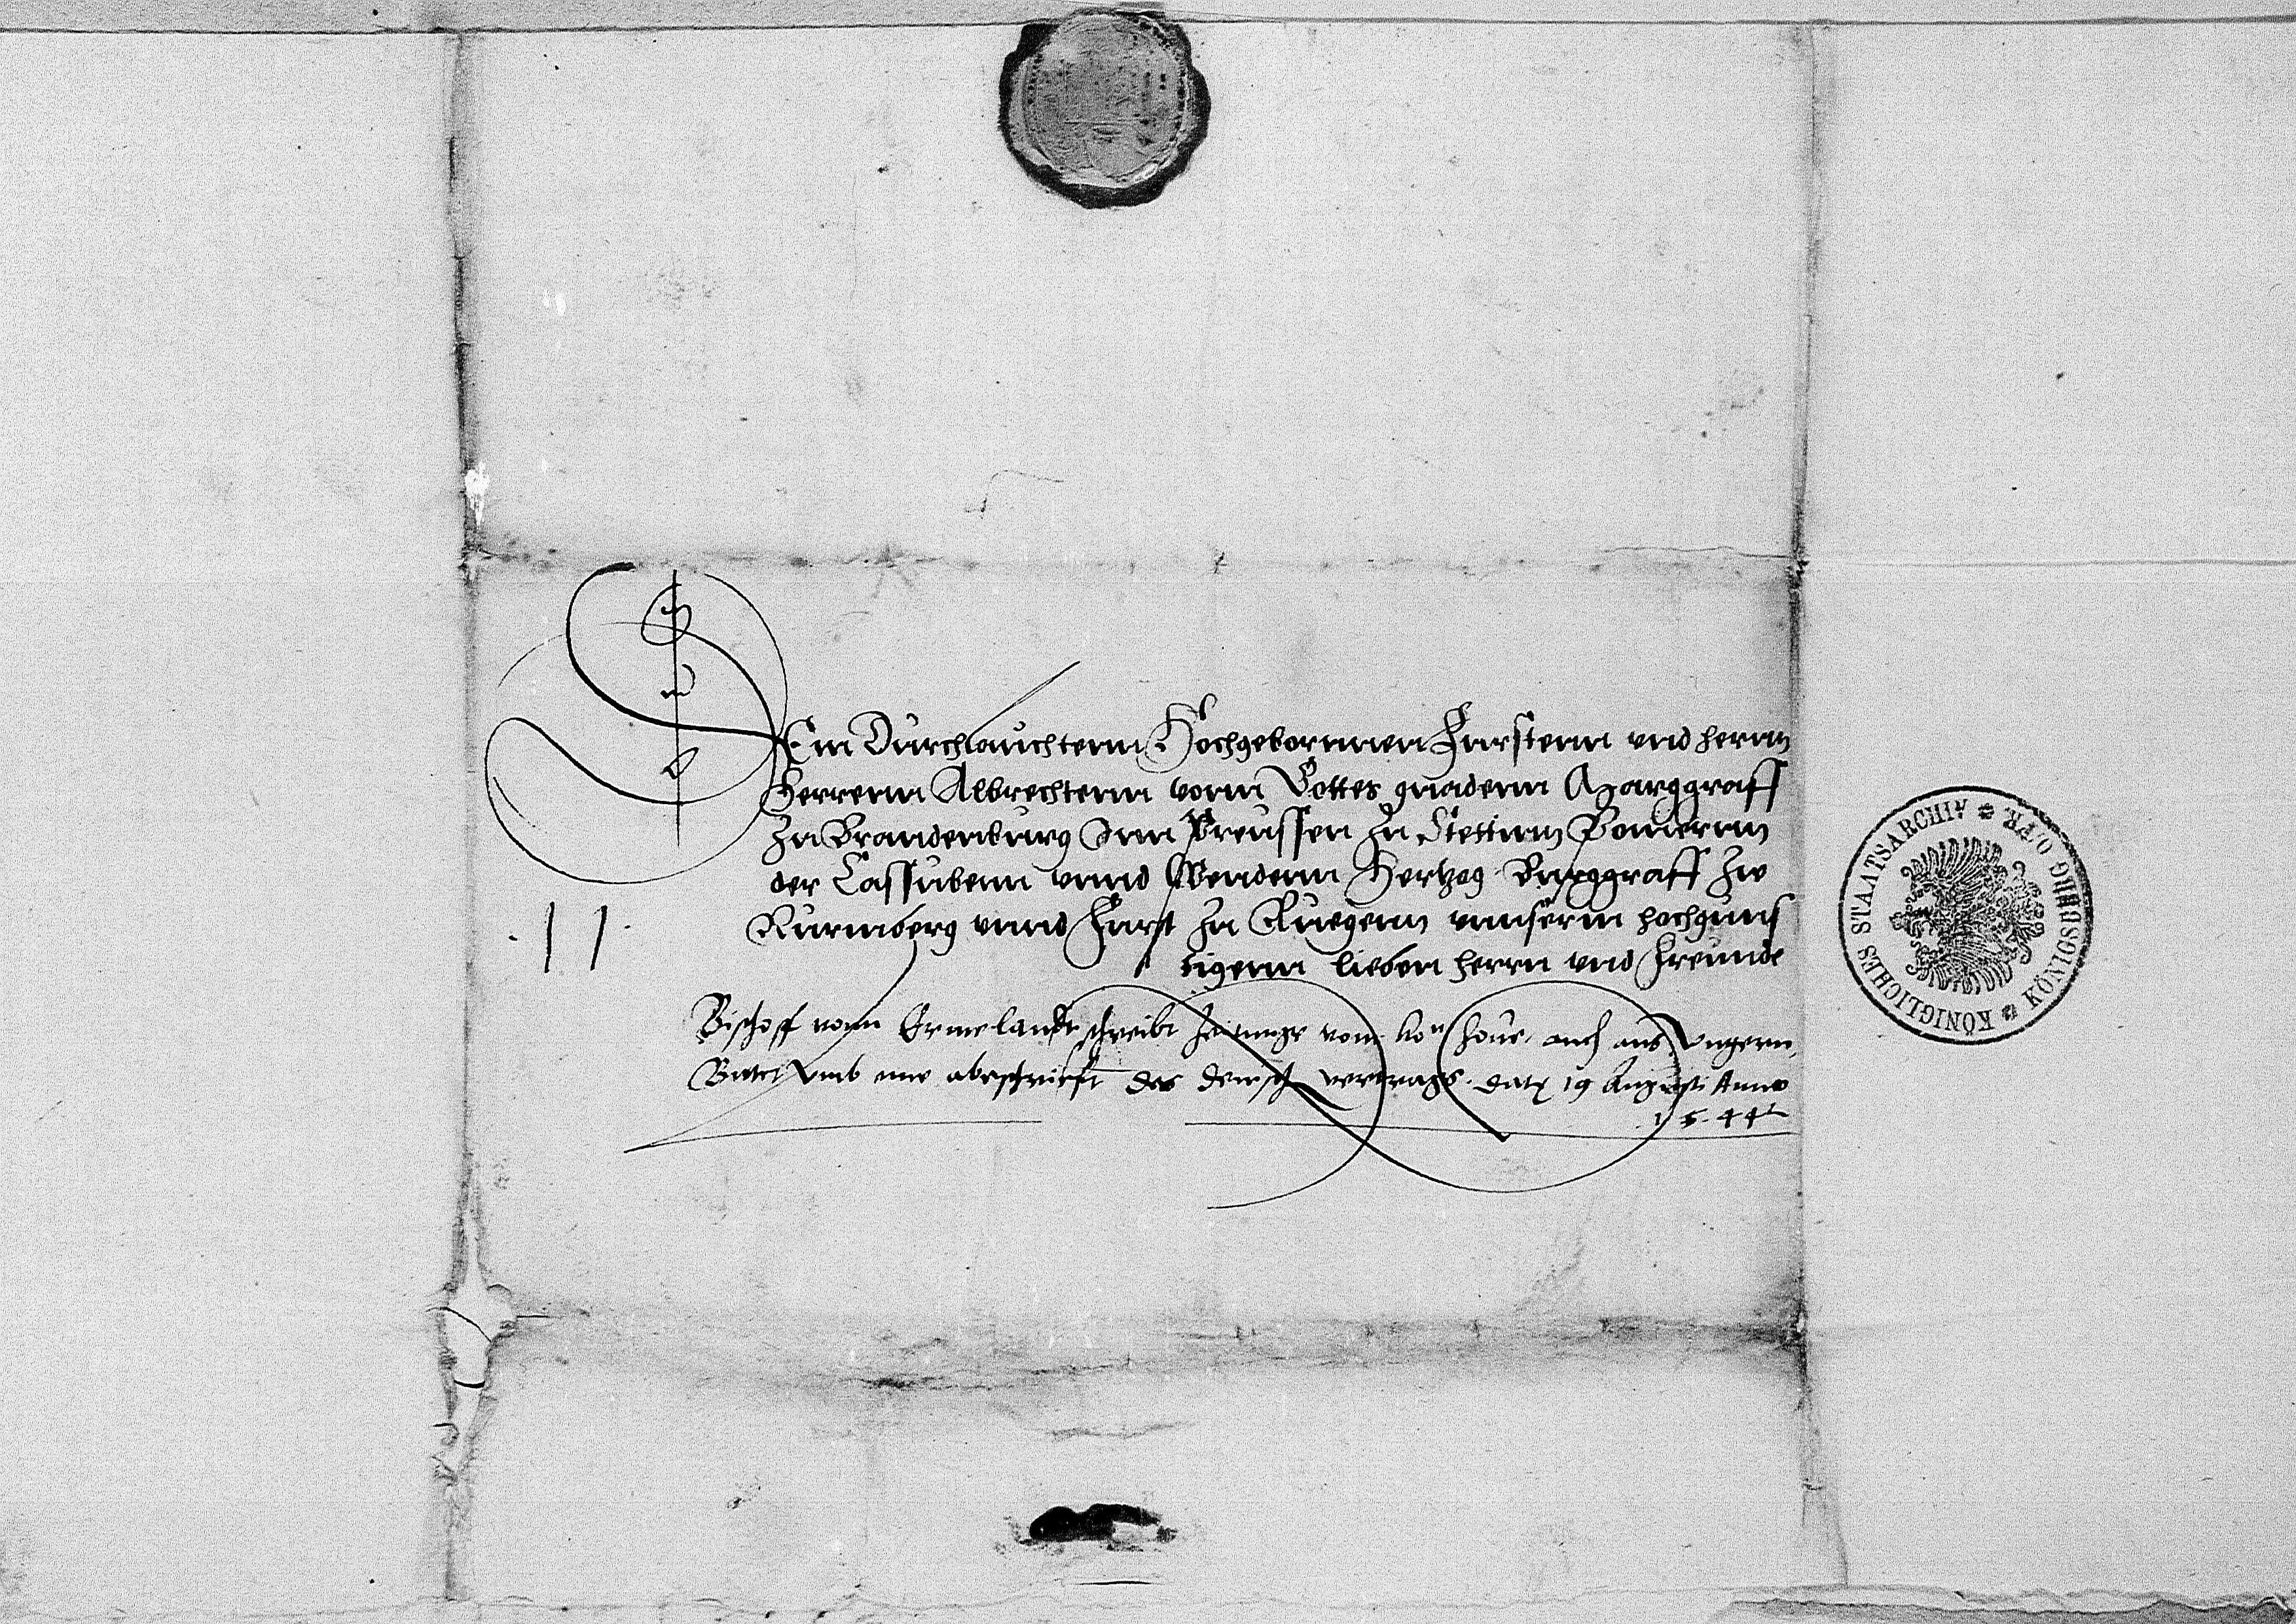 DEm Durchlauchtenn Hochgebornnen Furstenn vnd herrnn
Herrenn Albrechtenn vonn Gottes gnadenn Marggraff
Zu Brandenburg Inn Preussen Zu Stettinn Pomernn
der Cassubenn vnnd Wendenn Hertzog Burggraff Zw
Nurmberg vnnd Furst Zu Ruegenn vnnserm hochguns
tigenn lieben herrn vnd Freunde
11
Bischoff vonn Ermelandt schreibt Zeitunge vom kon houe auch aus Vngern,
Bittet Vmb eine abeschrifft des vertrags. Datz 19 Augusti Anno
1544
KÖNIGLICHES STAATSARCHIV KÖNIGSBERG O/PR.